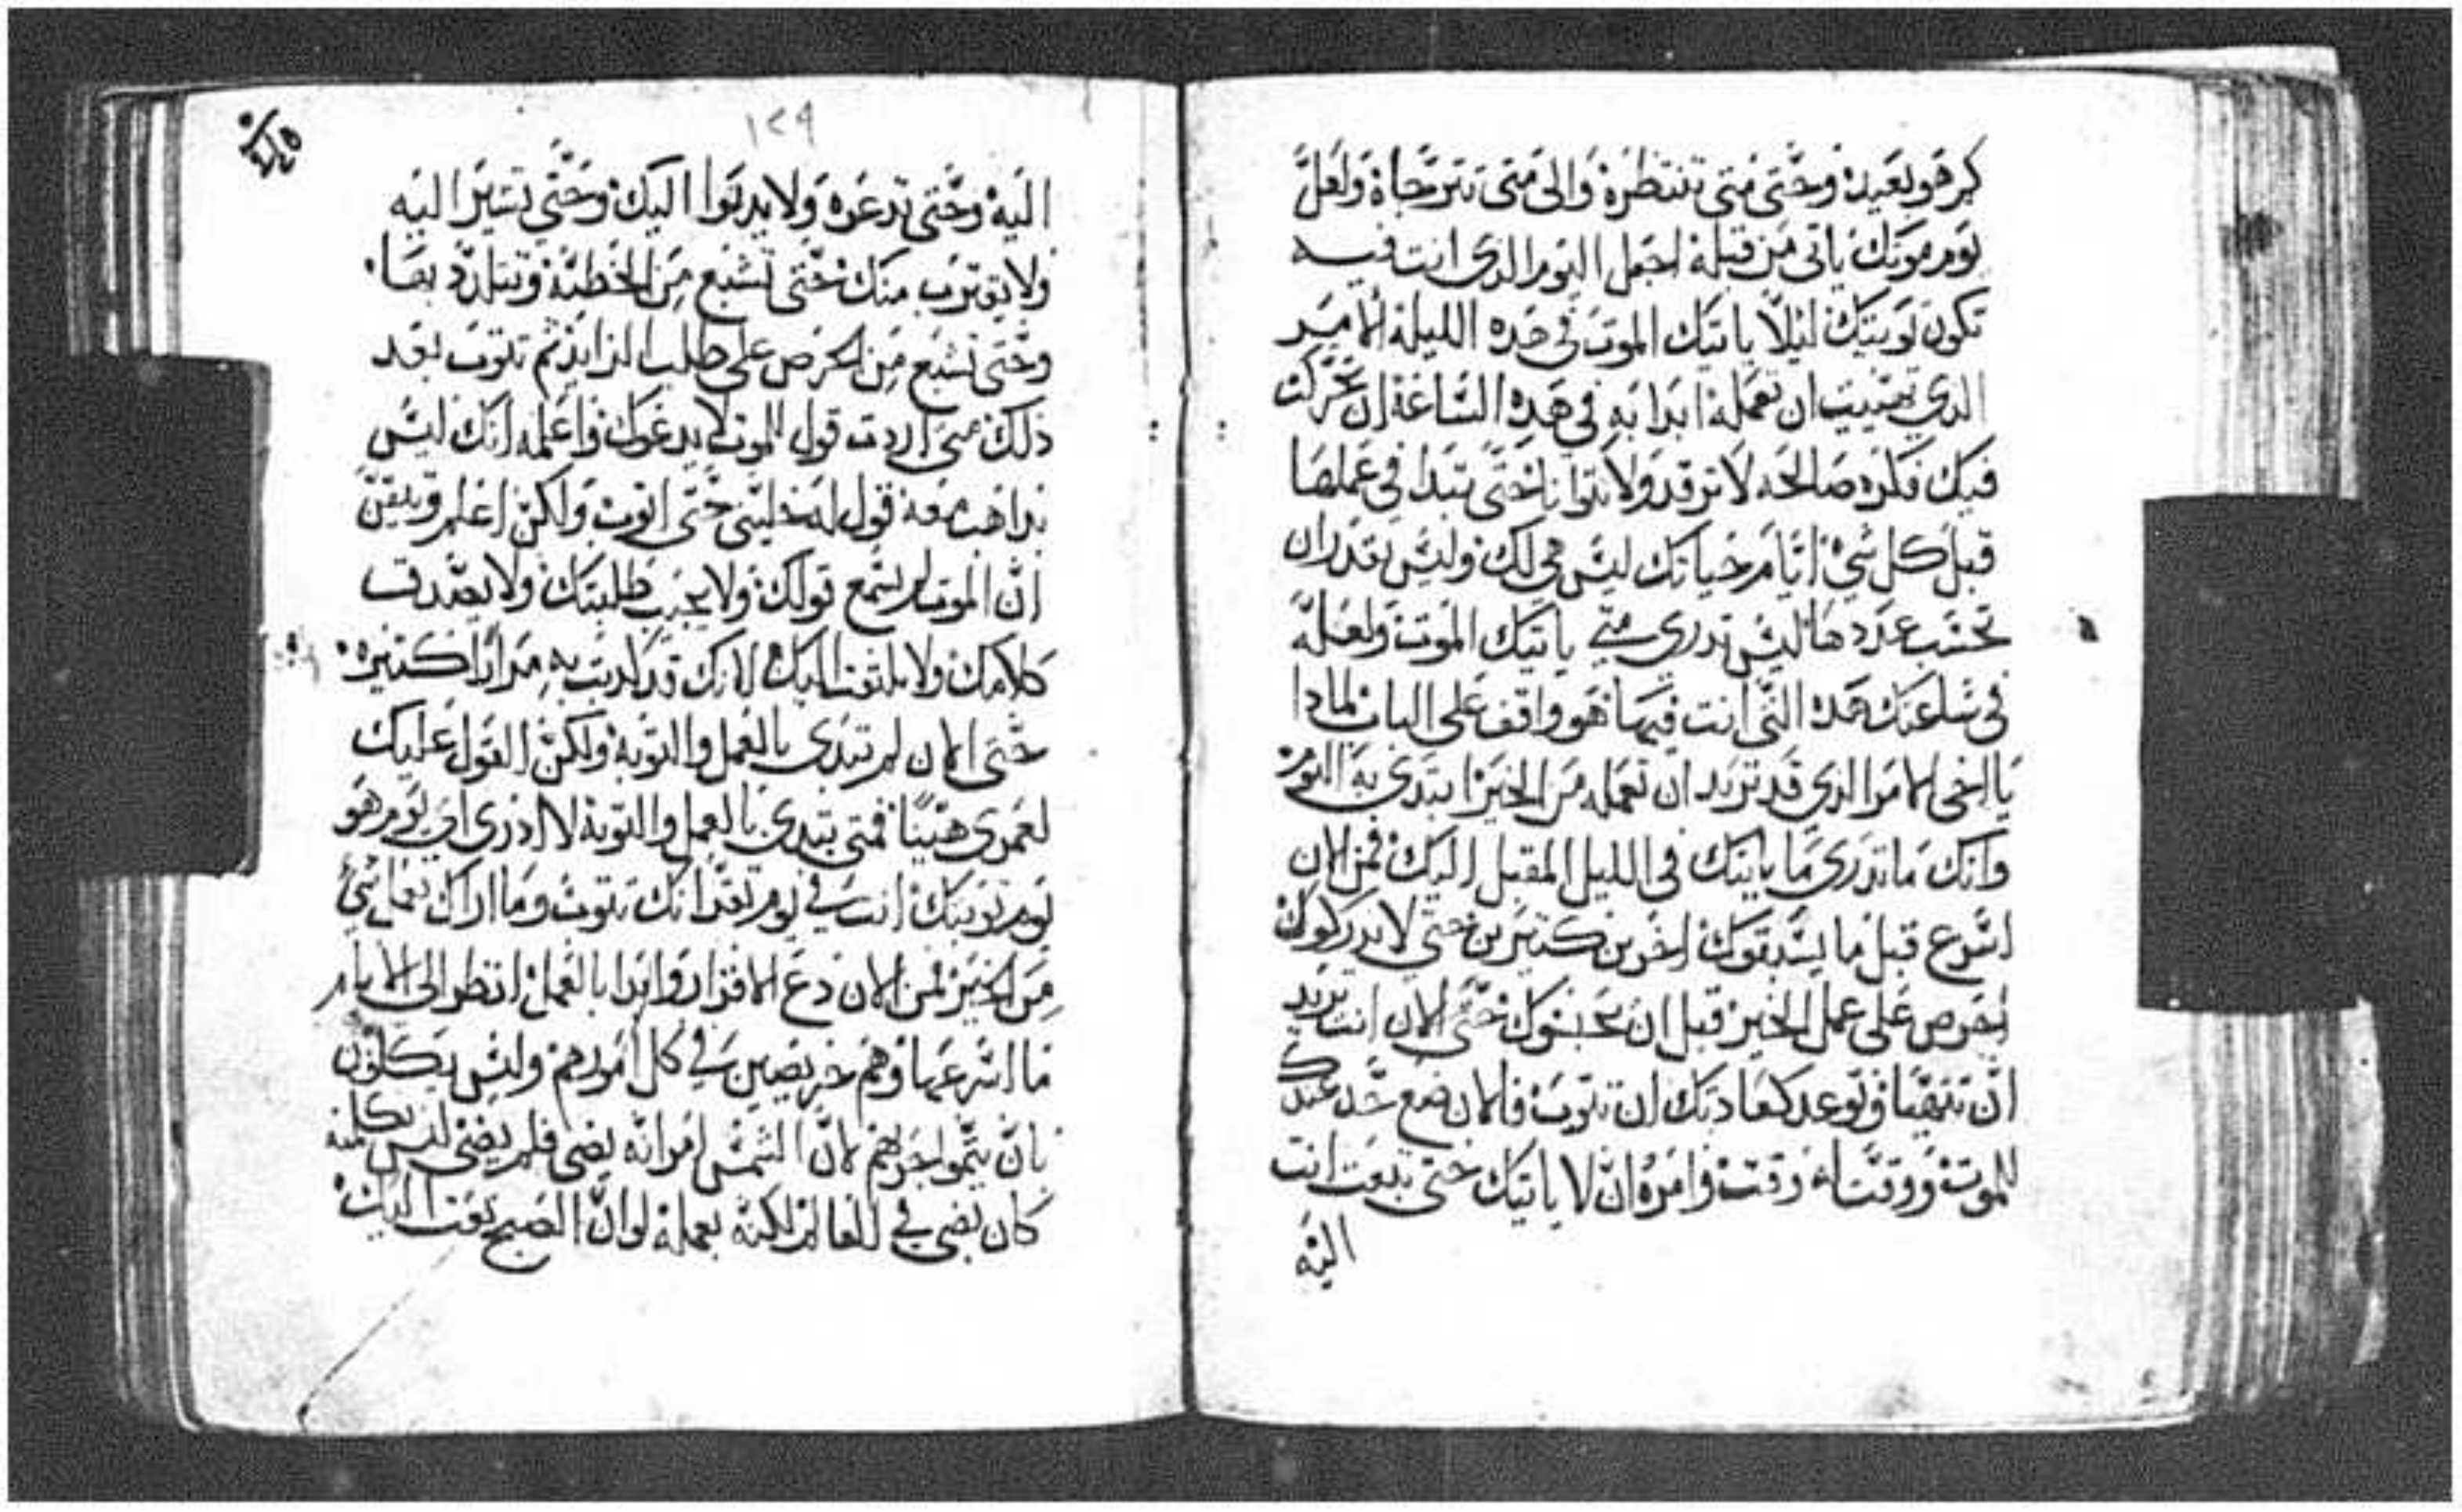 كم هو بعيد وحتى متى تنتظره والى متى تترجاه ولعل
يوم موتك ياتى من قبله اجعل اليوم الدي انت فيه
تكون توبتك ليلاً ياتيك الموت في هده الليله الامر
الدي تمنيت ان تعمله ابدا به في هده الساعه ان تحركت
فيك فكره صالحه لا ترقد ولا تتوانا حتى تبدا في عملها
قبل كل شي ايام حياتك ليس هي لك وليس تقدر ان
تحسب عددها ليس تدري متى ياتيك الموت ولعله
في ساعتك هده التي انت فيها هو واقف على الباب لمادا
يا اخي الامر الدي قد تريد ان تعمله من الخير ابتدي به اليوم
وانك ما تدري ما ياتيك في الليل المقبل اليك فمن الان
اسرع قبل ما يسبقوك اخرين كتيرين حتى لا يدركوك
احرص على عمل الخير قبل ان يحبسوك حتى الان انت تريد
ان تتهيا وتوعد كعادتك ان تتوب فالان ضع حد عندك
للموت ووقتاً وقت وامره ان لا ياتيك حتى تبعت انت
اليه
١٢٩
اليه وحتى تدعوه ولا يدنوا اليك وحتى تشير اليه
ولا يقترب منك حتى تشبع من الخطيه وتتلدد بها
وحتى تشبع من الحرص على طلب الزايد ثم تتوب بعد
ذلك متى اردت قول للموت لا يدعوك واعلمه انك ليس
تداهب معه قول له خليني حتى اتوب ولكن اعلم وتيقن
ان الموت لم يسمع قولك ولا يجيب طلبتك ولا يصدق
كلامك ولا يلتفت اليك لانك قد كدبت به مراراً كتيره
حتى الان لم تبتدي بالعمل والتوبه ولكن القول عليك
لعمري هيناً فمتى تبتدي بالعمل والتوبه لا ادري اي يوم هو
يوم توبتك انت في يوم تقر انك تتوب وما اراك تعمل شي
من الخير فمن الان دع الاقرار وابدا بالعمل انظر الى الايام
ما اسرعها وهم حريصين في كل امورهم وليس يكلون
بان يتموا جريهم لان الشمس امر انه يضي فلم يضي ليس بكل منه
كان يضي في العالم لكنه بعمله لو ان الصبح بعت اليك